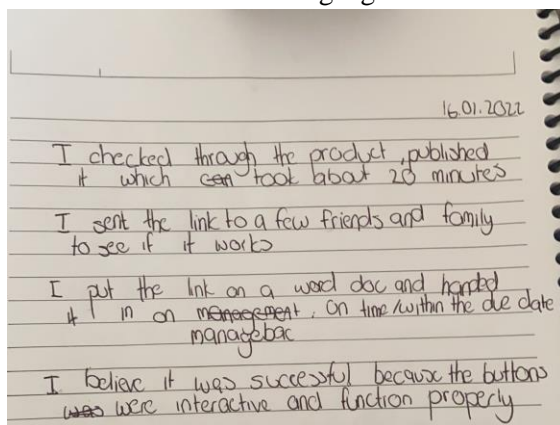 16.01.2022
I checked through the product, published
it which can took about 20 minutes
I sent the link to a few friends and family
to see if it works
I put the link on a word doc and handed
it in on management. On time/within the due date
managebac
I believe it was successful because the buttons
was were interactive and function properly